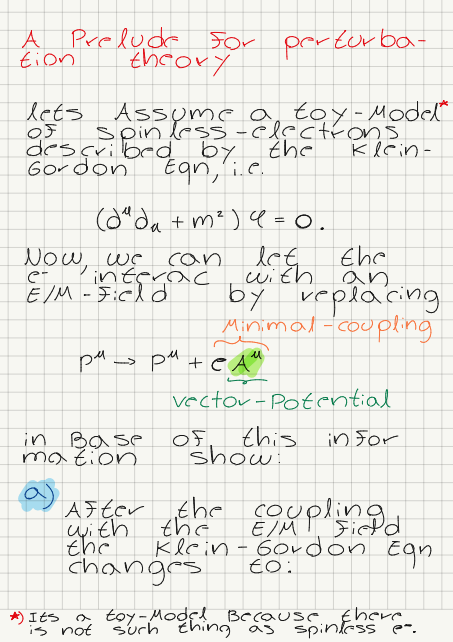 A Prelude for perturba-
tion theory
lets Assume a toy-Model*
of spinless-electrons
described by the Klein-
Gordon Eqn, i.e.
(∂^μ ∂_μ + m²) φ = 0.
Now, we can let the
e⁻ interac with an
E/M-Field by replacing
Minimal-coupling
p^μ → p^μ + e A^μ
vector-Potential
in Base of this infor
mation show:
a)
After the coupling
with the E/M Field
the Klein-Gordon Eqn
changes to:
*) Its a toy-Model Because there
is not such thing as spinless e⁻.